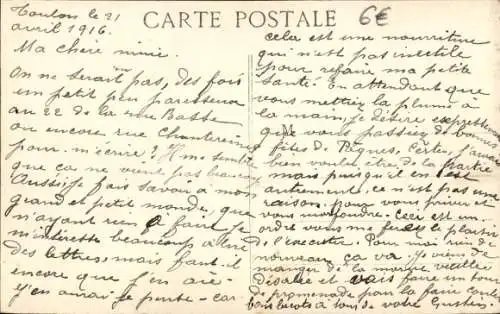 Toulon le 21
avril 1916.
CARTE POSTALE
6€
Ma chere mimi.
On ne serait pas, des fois
un petit peu paresseux
au 22 de la rue Basse
ou encore rue Chantereine
pour m'écrire? Il me semble
que ça ne vient pas beaucoup
Aussi, je fais savoir à mon
grand et petit monde, que
n'ayant rien à faire je
m'interesse beaucoup à lire
des lettres, mais faut-il
encore que j'en aie
J'en aurai je pense - car
cela est une nourriture
qui n'est pas inutile
pour refaire ma petite
santé. En attendant que
vous mettiez la plume à
la main, je désire
que vous passiez de bonnes
fêtes de Pâques, Certes, j'aurais
bien voulu être de la partie
mais puisqu'il en est
autrement, ce n'est pas une
raison pour vous priver et
vous Ceci est un
ordre vous me ferez le plaisir
de l'exécuter. Pour moi rien de
nouveau ça va. Je viens de
manger de la
et vais faire un peu
de promenade pour la faire
bons à tous de votre